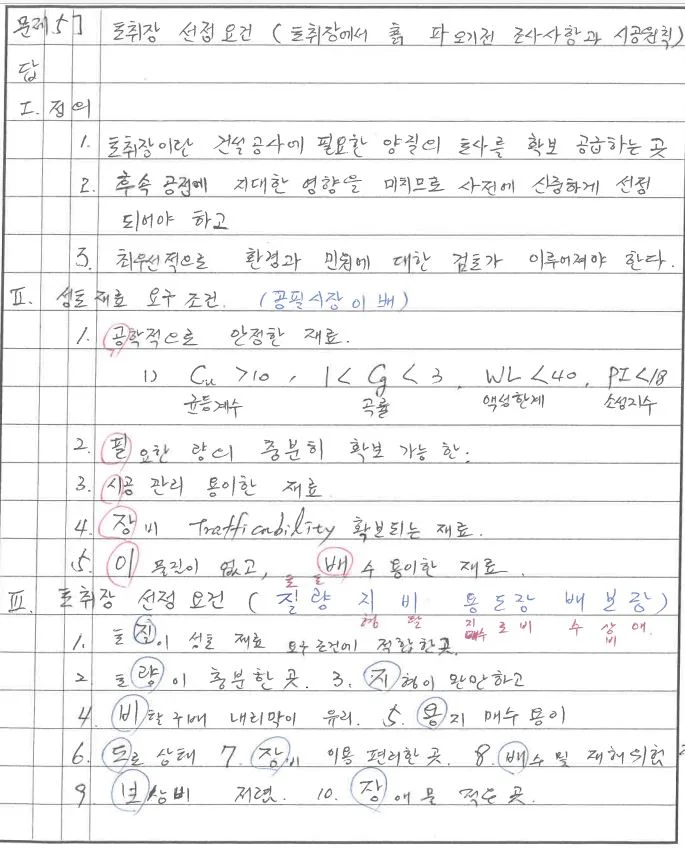 문제 5] 토취장 선정요건 (토취장에서 흙 파오기전 조사사항과 시공원칙)
답
I. 정의
1. 토취장이란 건설공사에 필요한 양질의 토사를 확보 공급하는 곳
2. 후속 공정에 지대한 영향을 미치므로 사전에 신중하게 선정
되어야 하고
3. 최우선적으로 환경과 민원에 대한 검토가 이루어져야 한다.
II. 성토재료 요구조건. (공필시장이배)
1. 공학적으로 안정한 재료.
1) Cu >10, 1< Cg < 3, WL <40, PI<18
균등계수 곡률 액성한계 소성지수
2. 필요한 량의 충분히 확보 가능한.
3. 시공 관리 용이한 재료
4. 장비 Trafficability 확보되는 재료.
5. 이물질이 없고, 배수 용이한 재료.
토 토
III. 토취장 선정요건 (질 량 지 비 용도장 배 보 장)
형 탈 지 로 비 수 상 애
매수 비
1. 토질이 성토 재료 요구조건에 적합한곳.
2 토량이 충분한 곳. 3. 지형이 완만하고
4. 비탈구배 내리막이 유리. 5. 용지 매수 용이
6. 도로 상태 7. 장비 이용 편리한 곳. 8. 배수 및 재해위험
9. 보상비 저렴. 10. 장애물 적은 곳.